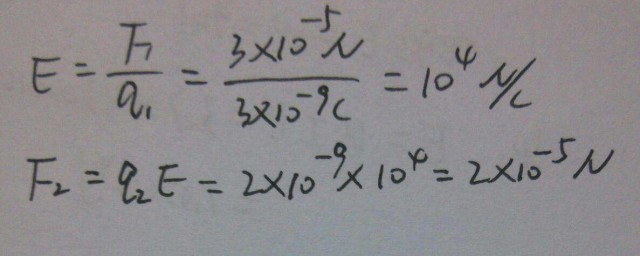 E = F₁/q₁ = 3×10⁻⁵N/3×10⁻⁹C = 10⁴ N/C
F₂ = q₂E = 2×10⁻⁹×10⁴ = 2×10⁻⁵ N